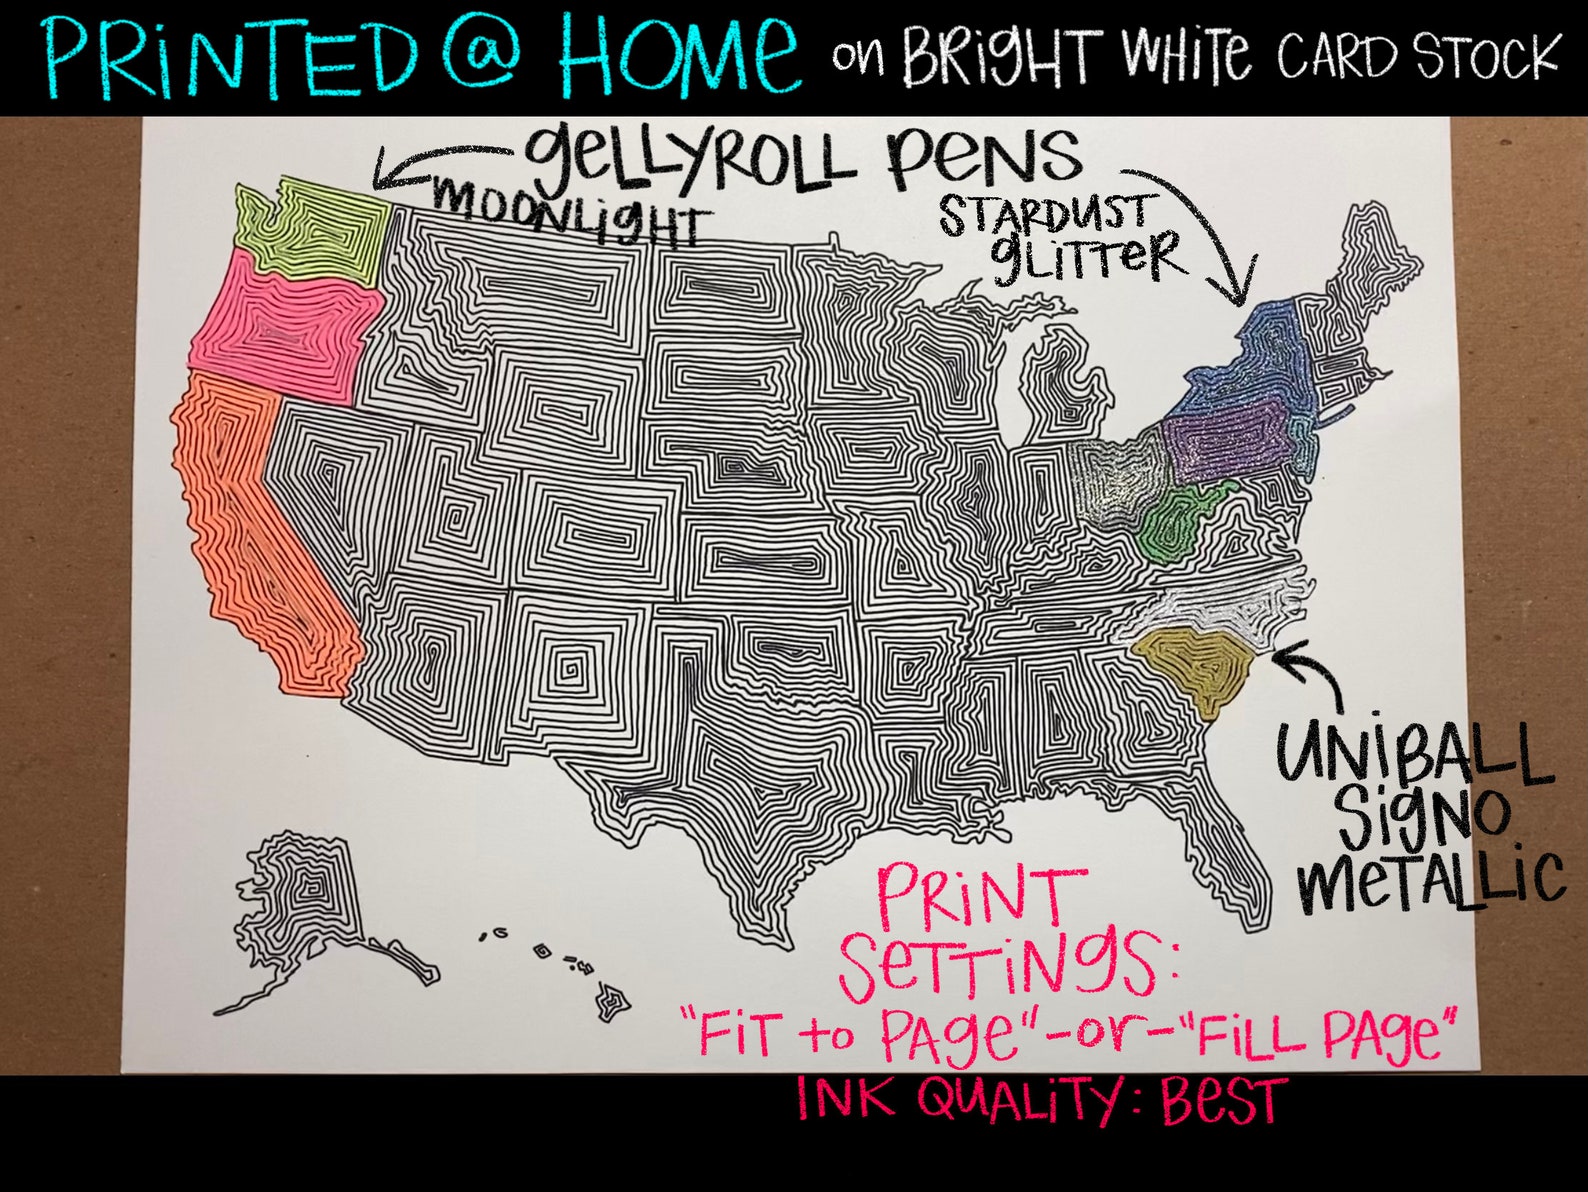 PRINTED @ HOME on BRIGHT WHITE CARD STOCK
GELLYROLL PENS
MOONLIGHT
STARDUST
GLITTER
UNIBALL
SIGNO
METALLIC
PRINT
SETTINGS:
"FIT to PAGE"-or-"FILL PAGE"
INK QUALITY: BEST